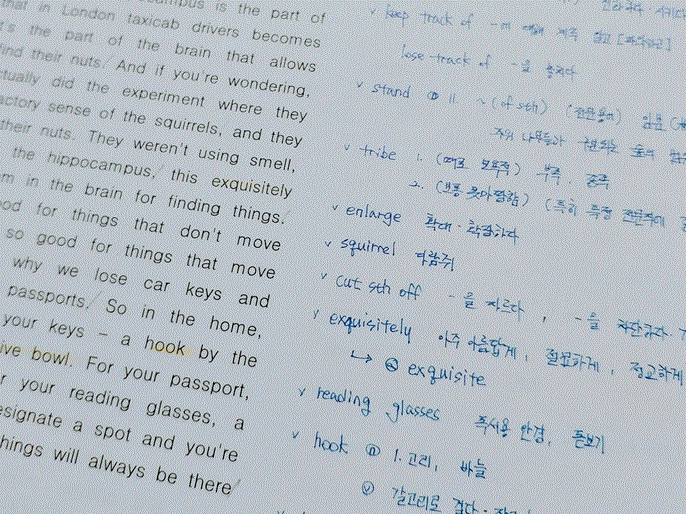 campus is the part of
that in London taxicab drivers becomes
's the part of the brain that allows
find their nuts. And if you're wondering,
ctually did the experiment where they
factory sense of the squirrels, and they
their nuts. They weren't using smell,
the hippocampus, this exquisitely
m in the brain for finding things.
od for things that don't move
so good for things that move
why we lose car keys and
passports. So in the home,
your keys – a hook by the
ive bowl. For your passport,
r your reading glasses, a
esignate a spot and you're
hings will always be there
v keep track of
lose track of -을 놓치다
v stand ⓝ 11. ~ (of sth)
v tribe 1. 부족, 종족
2.
v enlarge 확대·확장하다
v squirrel 다람쥐
v cut sth off -을 자르다, -을 차단하다·
v exquisitely 아주 아름답게, 절묘하게, 정교하게
↳ ⓐ exquisite
v reading glasses 독서용 안경, 돋보기
v hook ⓝ 1. 고리, 바늘
ⓥ 갈고리로 걸다·